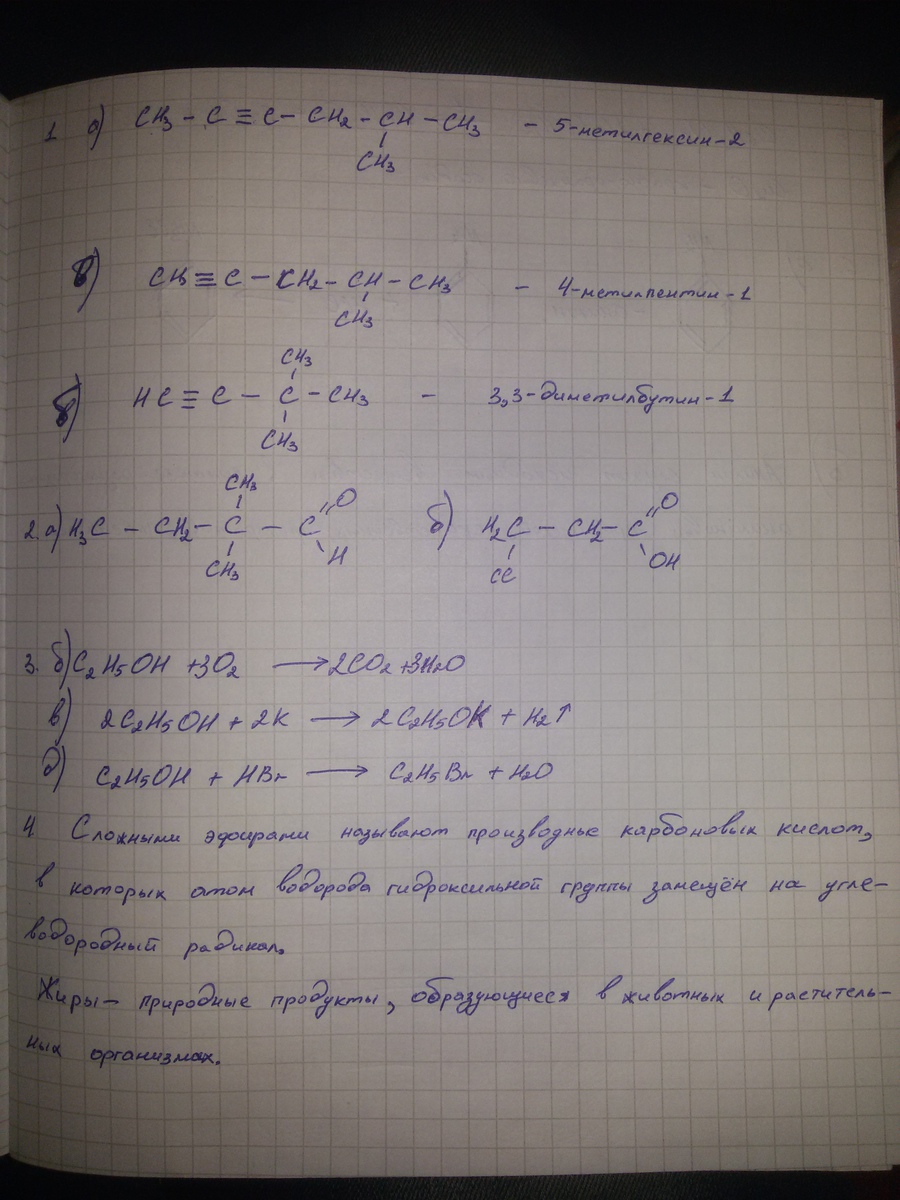 1 а) CH₃ – C ≡ C – CH₂ – CH – CH₃ – 5-метилгексин-2
CH₃
в) CH ≡ C – CH₂ – CH – CH₃ – 4-метилпентин-1
CH₃
CH₃
б) HC ≡ C – C – CH₃ – 3,3-диметилбутин-1
CH₃
CH₃
2. а) H₃C – CH₂ – C – C O б) H₂C – CH₂ – C O
CH₃ H Cl OH
3. б) C₂H₅OH + 3O₂ → 2CO₂ + 3H₂O
в) 2C₂H₅OH + 2K → 2C₂H₅OK + H₂↑
д) C₂H₅OH + HBr → C₂H₅Br + H₂O
4 Сложными эфирами называют производные карбоновых кислот,
в которых атом водорода гидроксильной группы замещён на угле-
водородный радикал.
Жиры – природные продукты, образующиеся в животных и раститель-
ных организмах.